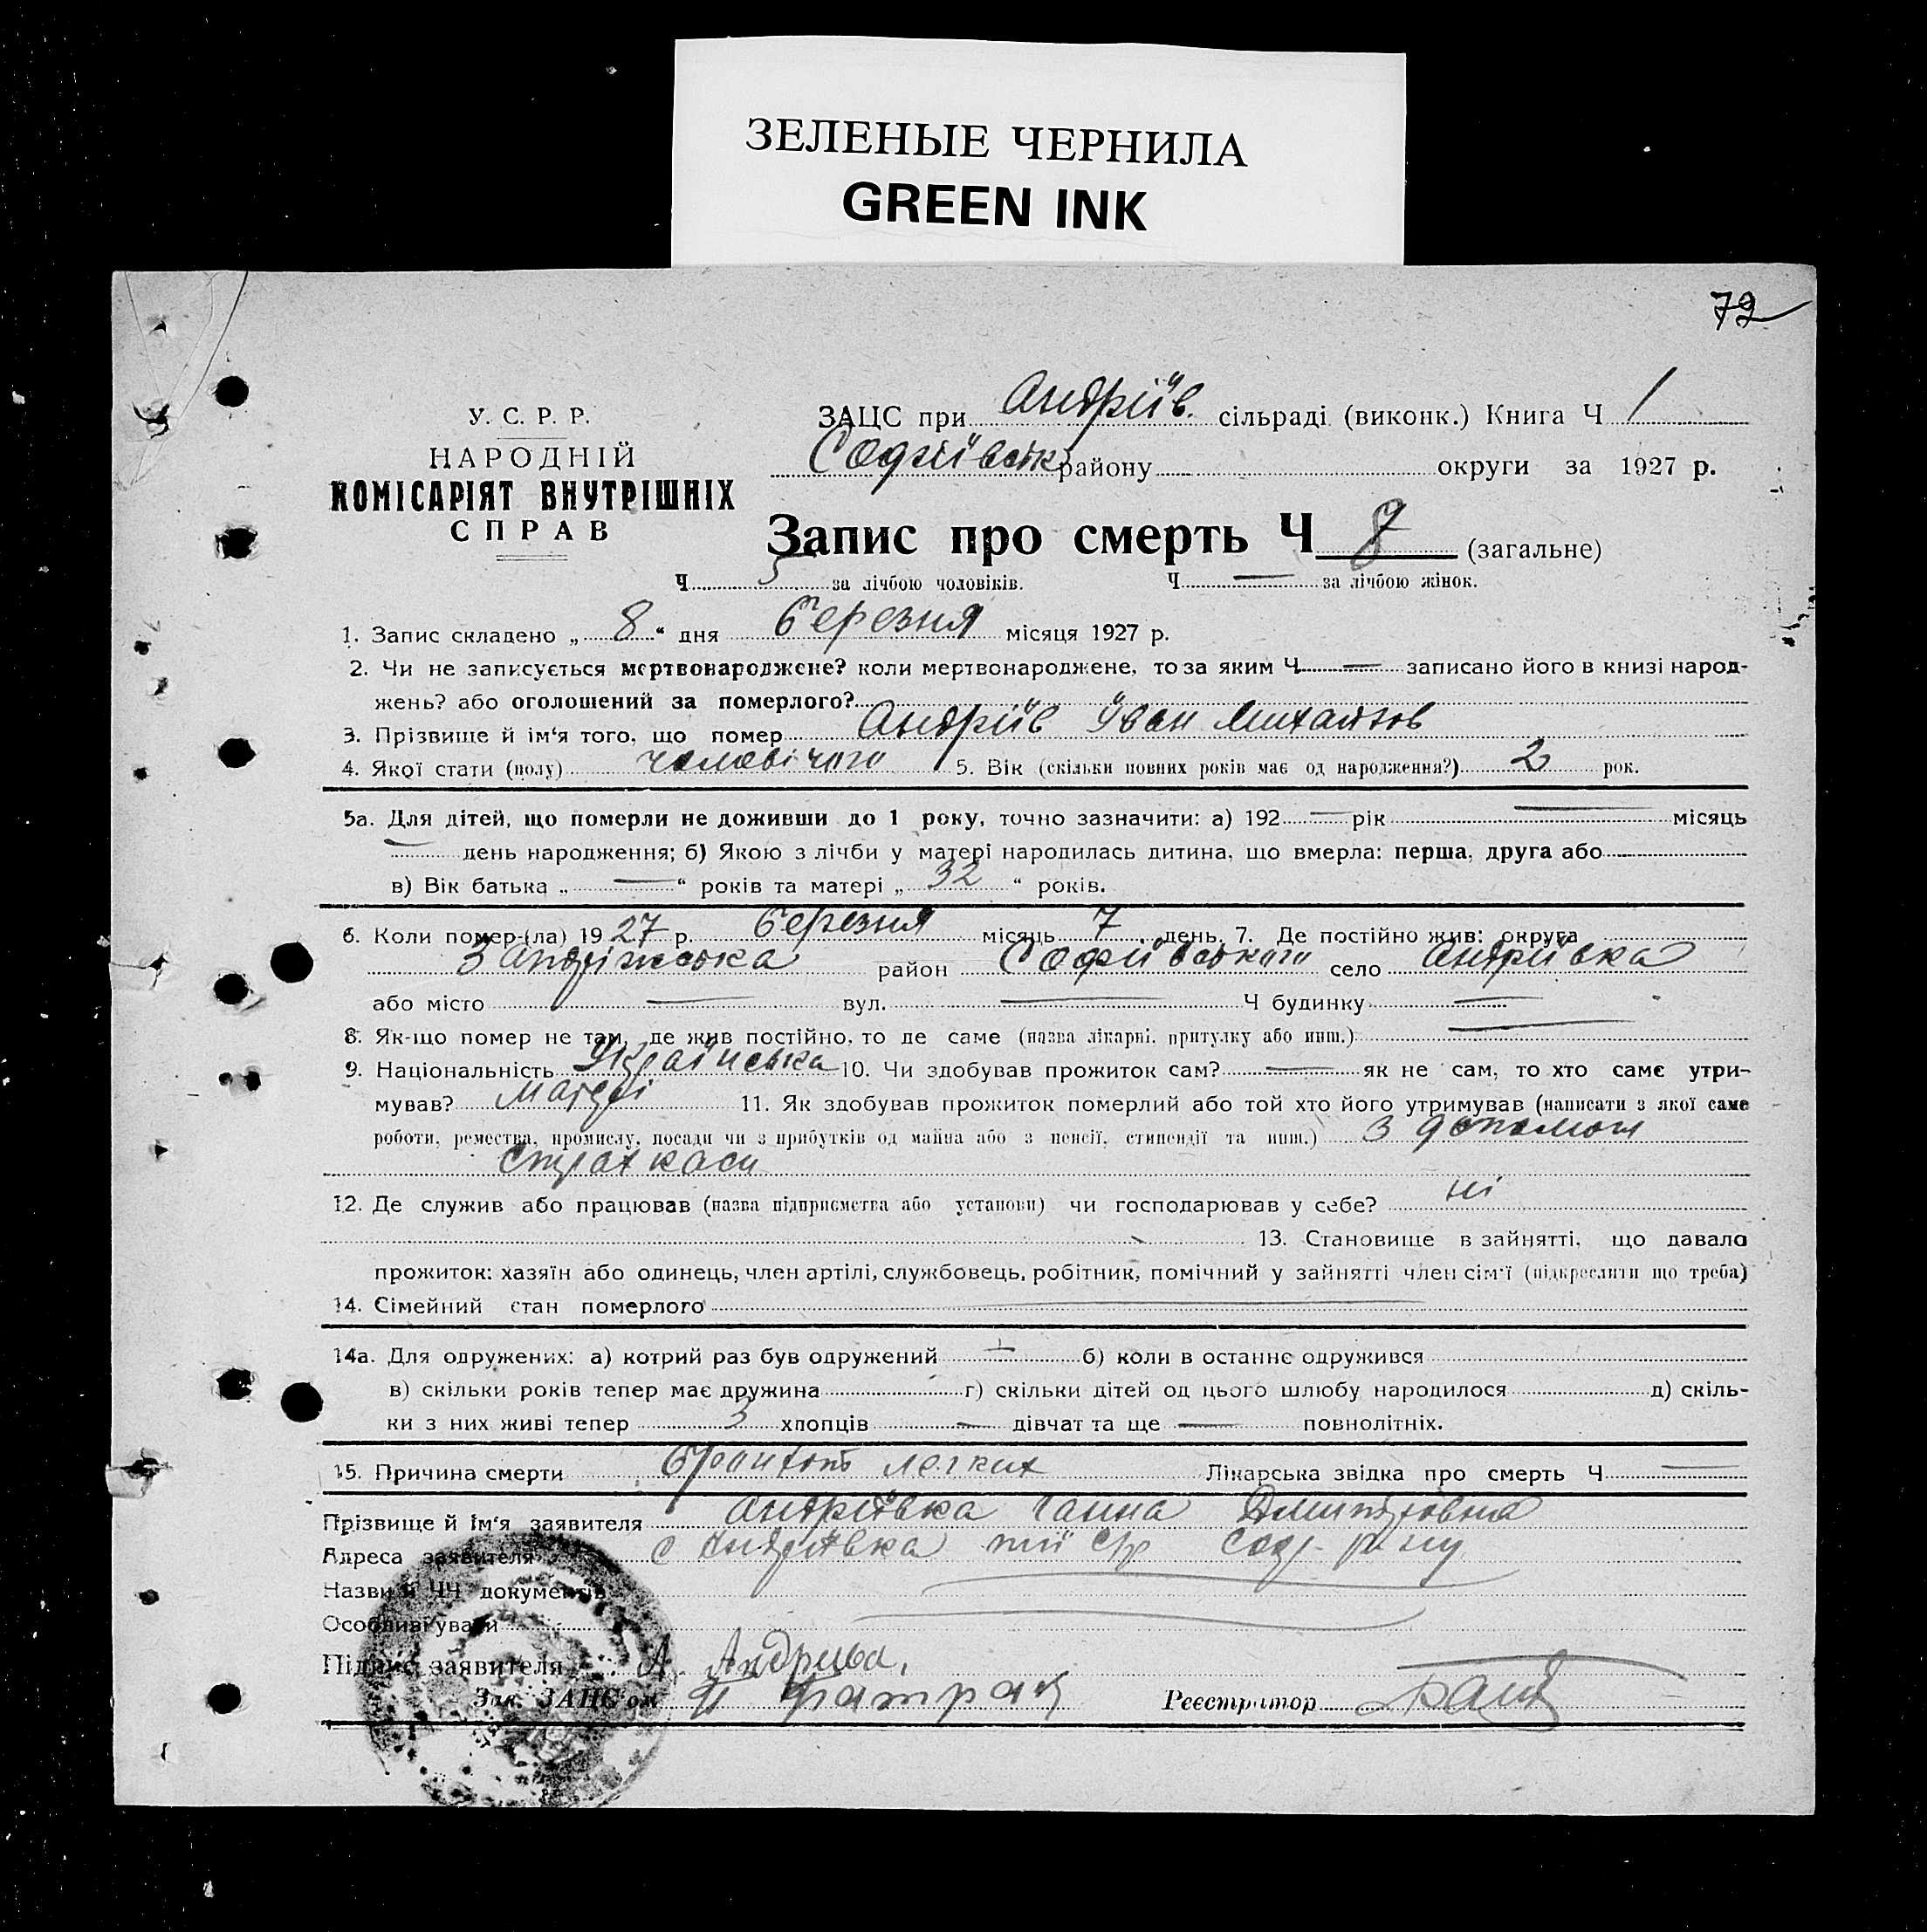 ЗЕЛЕНЫЕ ЧЕРНИЛА
GREEN INK
72
У. С. Р. Р.
НАРОДНІЙ
КОМІСАРІЯТ ВНУТРІШНІХ
СПРАВ
ЗАЦС при Андріїв. сільраді (виконк.) Книга Ч 1
Софіївськ району округи за 1927 р.
Запис про смерть Ч 8 (загальне)
Ч 5 за лічбою чоловіків. Ч — за лічбою жінок.
1. Запис складено „ 8 “ дня березня місяця 1927 р.
2. Чи не записується мертвонароджене? коли мертвонароджене, то за яким Ч — записано його в книзі народ-
жень? або оголошений за померлого?
3. Прізвище й ім'я того, що помер Андріїв Іван Михайлов
4. Якої стати (полу) чоловічого 5. Вік (скільки повних років має од народження?) 2 рок.
5а. Для дітей, що померли не доживши до 1 року, точно зазначити: а) 192 — рік — місяць
— день народження; б) Якою з лічби у матері народилась дитина, що вмерла: перша, друга або
в) Вік батька „ — “ років та матері „ 32 “ років.
6. Коли помер-(ла) 1927 р. березня місяць 7 день. 7. Де постійно жив: округа
район Софіївського село Андріївка
або місто — вул. — Ч будинку —
8. Як-що помер не там, де жив постійно, то де саме (назва лікарні, притулку або инш.) —
9. Національність Українська 10. Чи здобував прожиток сам? — як не сам, то хто саме утри-
мував? матері 11. Як здобував прожиток померлий або той хто його утримував (написати з якої саме
роботи, ремества, промислу, посади чи з прибутків од майна або з пенсії, стипендії та инш.) з допомоги
страхкаси
12. Де служив або працював (назва підприємства або установи) чи господарював у себе? ні
13. Становище в зайнятті, що давало
прожиток: хазяїн або одинець, член артілі, службовець, робітник, помічний у зайнятті член сім'ї (підкреслити що треба)
14. Сімейний стан померлого —
14а. Для одружених: а) котрий раз був одружений — б) коли в останнє одружився
в) скільки років тепер має дружина г) скільки дітей од цього шлюбу народилося д) скіль-
ки з них живі тепер 3 хлопців — дівчат та ще — повнолітніх.
15. Причина смерти легких Лікарська звідка про смерть Ч —
Прізвище й ім'я заявителя Андріївка Ганна Дмитровна
Адреса заявителя с Андріївка
Назви й ЧЧ документів
Особливі уваги
Підпис заявителя А. Андриева.
Зав. ЗАЦС'ом
Реєстратор